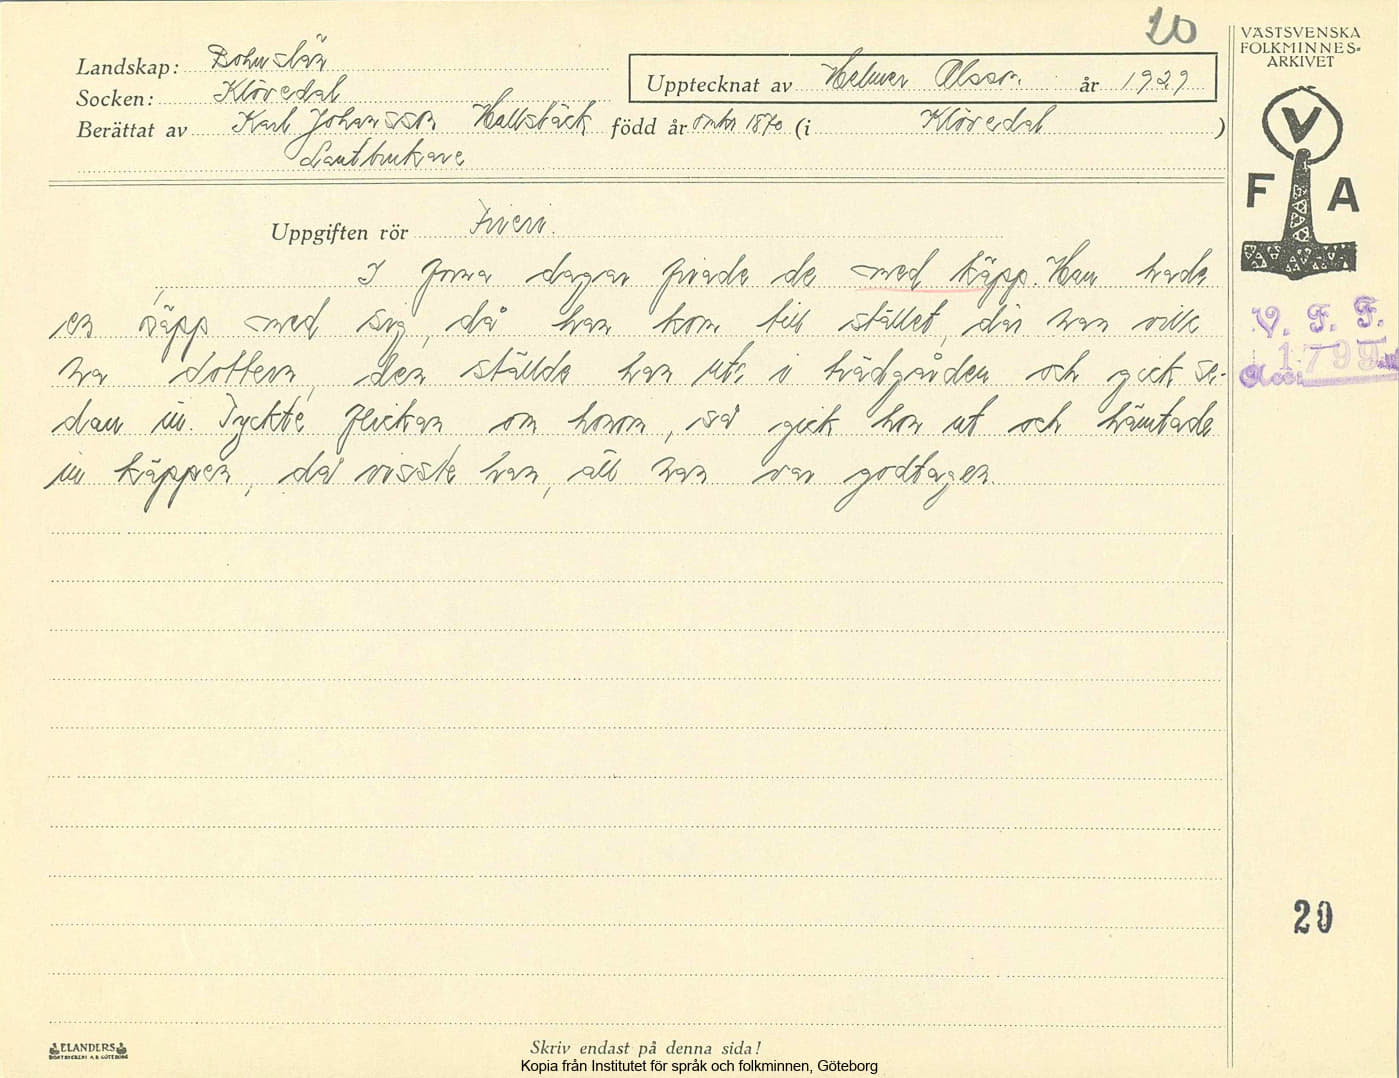 20
VÄSTSVENSKA
FOLKMINNES-
ARKIVET
Landskap: Bohuslän
Socken: Klövedal
Upptecknat av Helmer Olsson år 1929
Berättat av Karl Johansson Hallsbäck född år omkr 1870 (i Klövedal )
Lantbrukare
V
F A
Uppgiften rör Frieri.
I forna dagar friade de med käpp. Han hade
en käpp med sig, då han kom till stället, där han ville
ha dottern, den ställde han ute i trädgården och gick se-
dan in. Tyckte flickan om honom, så gick hon ut och hämtade
in käppen, då visste han, att han var godtagen.
V. F. F.
Acc: 1799
20
ELANDERS
BOKTRYCKERI A.B. GÖTEBORG
Skriv endast på denna sida!
Kopia från Institutet för språk och folkminnen, Göteborg